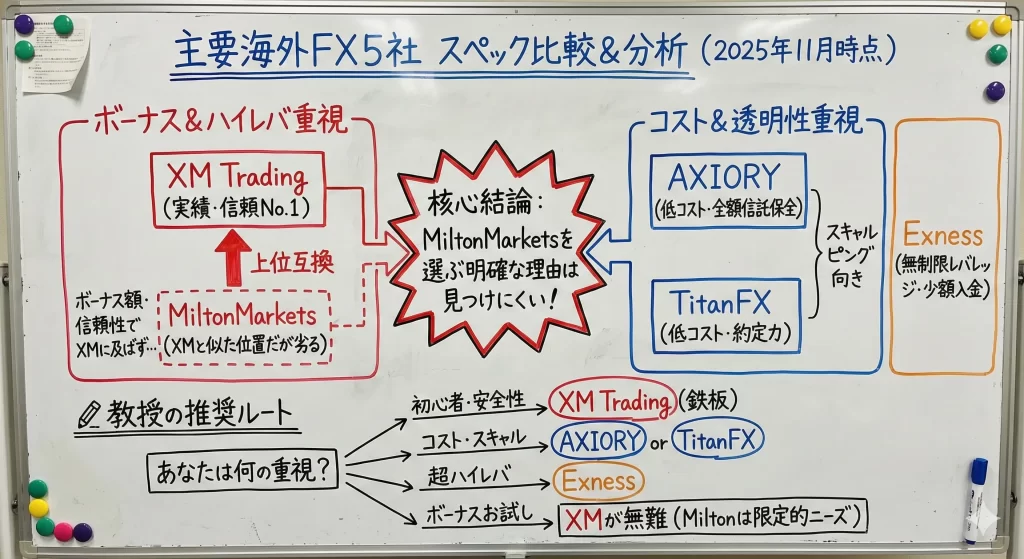 主要海外FX5社 スペック比較&分析 (2025年11月時点)
ボーナス&ハイレバ重視
XM Trading
(実績・信頼No.1)
上位互換
ボーナス額・
信頼性で
XMに及ばず…
MiltonMarkets
(XMと似た位置だが劣る)
核心結論:
MiltonMarketsを
選ぶ明確な理由は
見つけにくい!
コスト&透明性重視
AXIORY
(低コスト・全額信託保全)
TitanFX
(低コスト・約定力)
スキャル
ピング
向き
Exness
(無制限レバレッ
ジ・少額入金)
教授の推奨ルート
あなたは何の重視?
初心者・安全性
XM Trading(鉄板)
コスト・スキャル
AXIORY or TitanFX
超ハイレバ
Exness
ボーナスお試し
XMが無難(Miltonは限定的ニーズ)